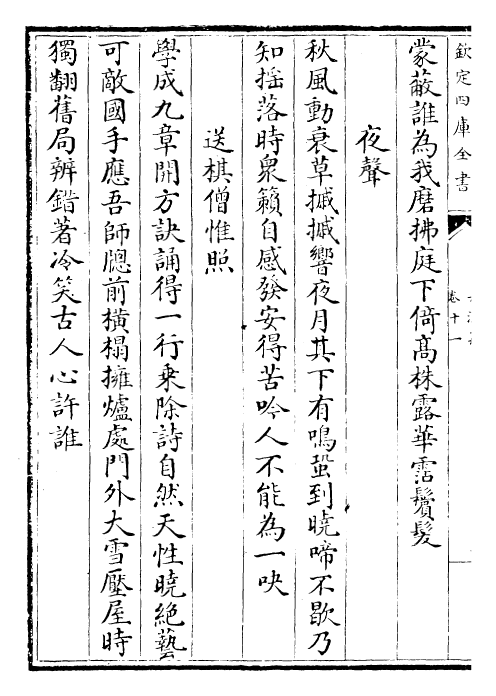 欽定四庫全書
卷十一
蒙蔽誰為我磨拂庭下倚髙株露華霑鬢髪
夜聲
秋風動衰草摵摵響夜月其下有鳴蛩到曉啼不歇乃
知揺落時衆籟自感發安得苦吟人不能為一吷
送棋僧惟照
學成九章開方訣誦得一行乗除詩自然天性曉絶藝
可敵國手應吾師牕前横榻擁爐處門外大雪壓屋時
獨翻舊局辨錯著冷笑古人心許誰